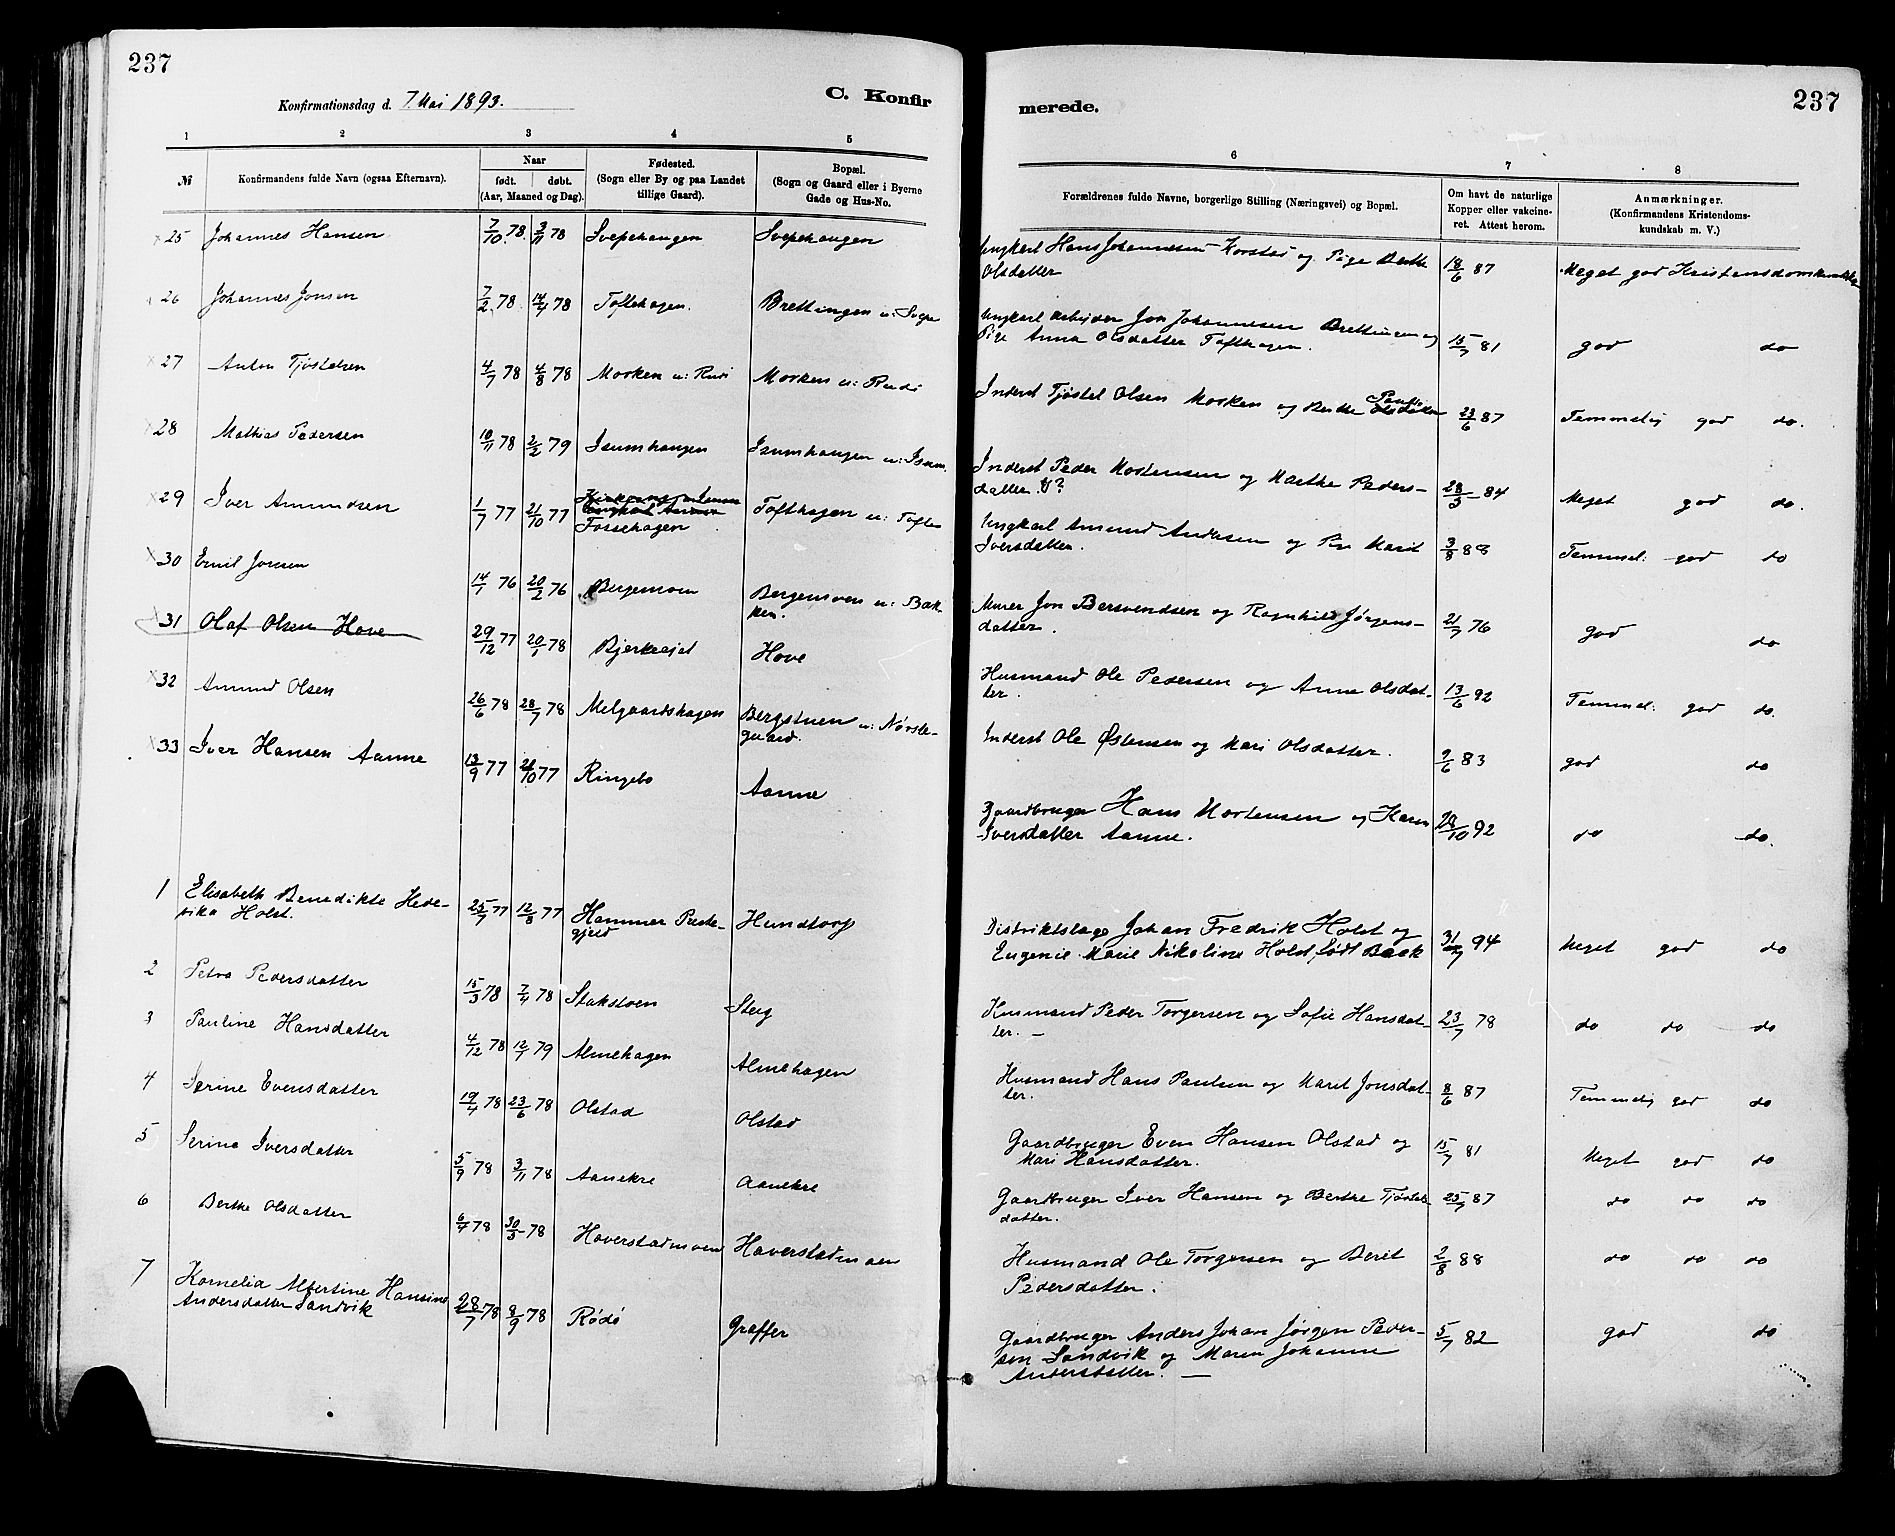 237
Konfirmationsdag d. 7. Mai 1893.
C. Konfir
merede.
237
1 2 3 4 5 6 7 8
№
Konfirmandens fulde Navn (ogsaa Efternavn).
Naar
født. døbt.
(Aar, Maaned og Dag).
Fødested.
(Sogn eller By og paa Landet
tillige Gaard).
Bopæl.
(Sogn og Gaard eller i Byerne
Gade og Hus-No.
Forældrenes fulde Navne, borgerlige Stilling (Næringsvei) og Bopæl.
Om havt de naturlige
Kopper eller vakcine-
ret. Attest herom.
Anmærkninger.
(Konfirmandens Kristendoms-
kundskab m. V.)
25 Johannes Hansen 7/10 78. 3/11 78 Svepehaugen Svepehaugen
Ungkarl Hans Johannesen Korstad og Pige Berthe
Olsdatter 18/6 87 Meget god
26 Johannes Jonsen 7/2 78. 14/4 78 Tofthagen. Brettingen u: Svepe
Ungkarl Arbeider Jon Johannesen Brettingen og
Pige Anna Olsdatter Tofthagen. 15/7 81 god do
27 Anton Tjøstelsen 4/7 78 4/8 78 Morken u: Rudi Morken u: Rudi
Inderst Tjøstel Olsen Morken og Berthe 23/6 87 Temmelig god do.
28 Mathias Pedersen 10/11 78 2/2 79 Isumhaugen Isumhaugen u: Isum.
Inderst Peder Mortensen og Marthe Peders-
datter. 28/3 84 Meget god do.
29 Iver Amundsen 1/7 77 21/10 77
Fossehagen Tofthagen u: Tofte
Ungkarl Amund Andersen og Marit
Iversdatter. 3/8 88 Temmel: god do
30 Emil Jonsen 14/1 76 20/2 76 Bergemoen Bergemoen u: Bak
ken.
Murer Jon Bersvendsen og Ragnhild Jørgens-
datter. 21/7 76 god do
31 Olaf Olsen Hove 29/12 77 20/1 78 Hove
Husmand Ole Pedersen og Anne Olsdat-
ter. 13/6 92 Temmel: god do.
32 Amund Olsen 26/6 78 28/7 78 Melgaardshagen Bergstuen u: Nørste-
gaard.
Inderst Ole Østensen og Mari Olsdatter. 9/6 83 god do
33 Iver Hansen Aanne 13/9 77 21/10 77 Ringebo Aanne
Gaardbruger Hans Mortensen og Karen
Iversdatter Aanne. 28/10 92 do do.
1 Elisabeth Benedikte Hede-
vika Holst. 25/7 77 12/8 77 Hammer Præste-
gjeld Hundtorp
Distriktslæge Johan Fredrik Holst og
Eugenie Marie Nikoline Holst født Back 31/7 94 Meget god do
2 Petra Pedersdatter 15/3 78 7/4 78 Stakstoen Steig
Husmand Peder Torgersen og Sofie Hansdat-
ter. — 23/7 78 do do do
3 Pauline Hansdatter 4/12 78 12/1 79 Almehagen Almehagen
Husmand Hans Paulsen og Marit Jonsdat-
ter. 8/6 87 Temmelig god do
4 Serine Evensdatter 19/4 78 23/6 78 Olstad Olstad
Gaardbruger Even Hansen Olstad og
Mari Hansdatter. 15/7 81 Meget god do
5 Serine Iversdatter 5/9 78 3/11 78 Aanekre Aanekre
Gaardbruger Iver Hansen og Berthe Tjøstels
datter. 25/7 87 do do do
6 Berthe Olsdatter 6/4 78 30/5 78 Haverstadmoen Haverstadmoen
Husmand Ole Torgersen og Berit
Pedersdatter. 2/8 88 do do do
7 Kornelia Albertine Hansine
Andersdatter Sandvik 28/7 78 8/9 78 Rødø Graffer
Gaardbruger Anders Johan Jørgen Peder-
sen Sandvik og Maren Johanne
Andersdatter. — 5/7 82 god do